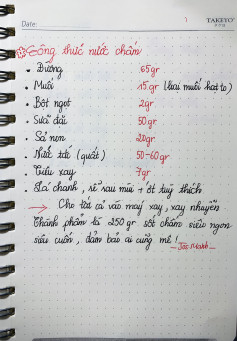 Date:
TAKEYO
Công thức nước chấm
Đường 65gr
Muối 15gr (loại muối hạt to)
Bột ngọt 2gr
Sữa đặc 50gr
Sả non 20gr
Nước tắc (quất) 50-60gr
Tiêu xay 7gr
Lá chanh, rễ sau mùi + ớt tuỳ thích
Cho tất cả vào máy xay, xay nhuyễn
Thành phẩm là 250gr sốt chấm siêu ngon
siêu cuốn, đảm bảo ai cũng mê!